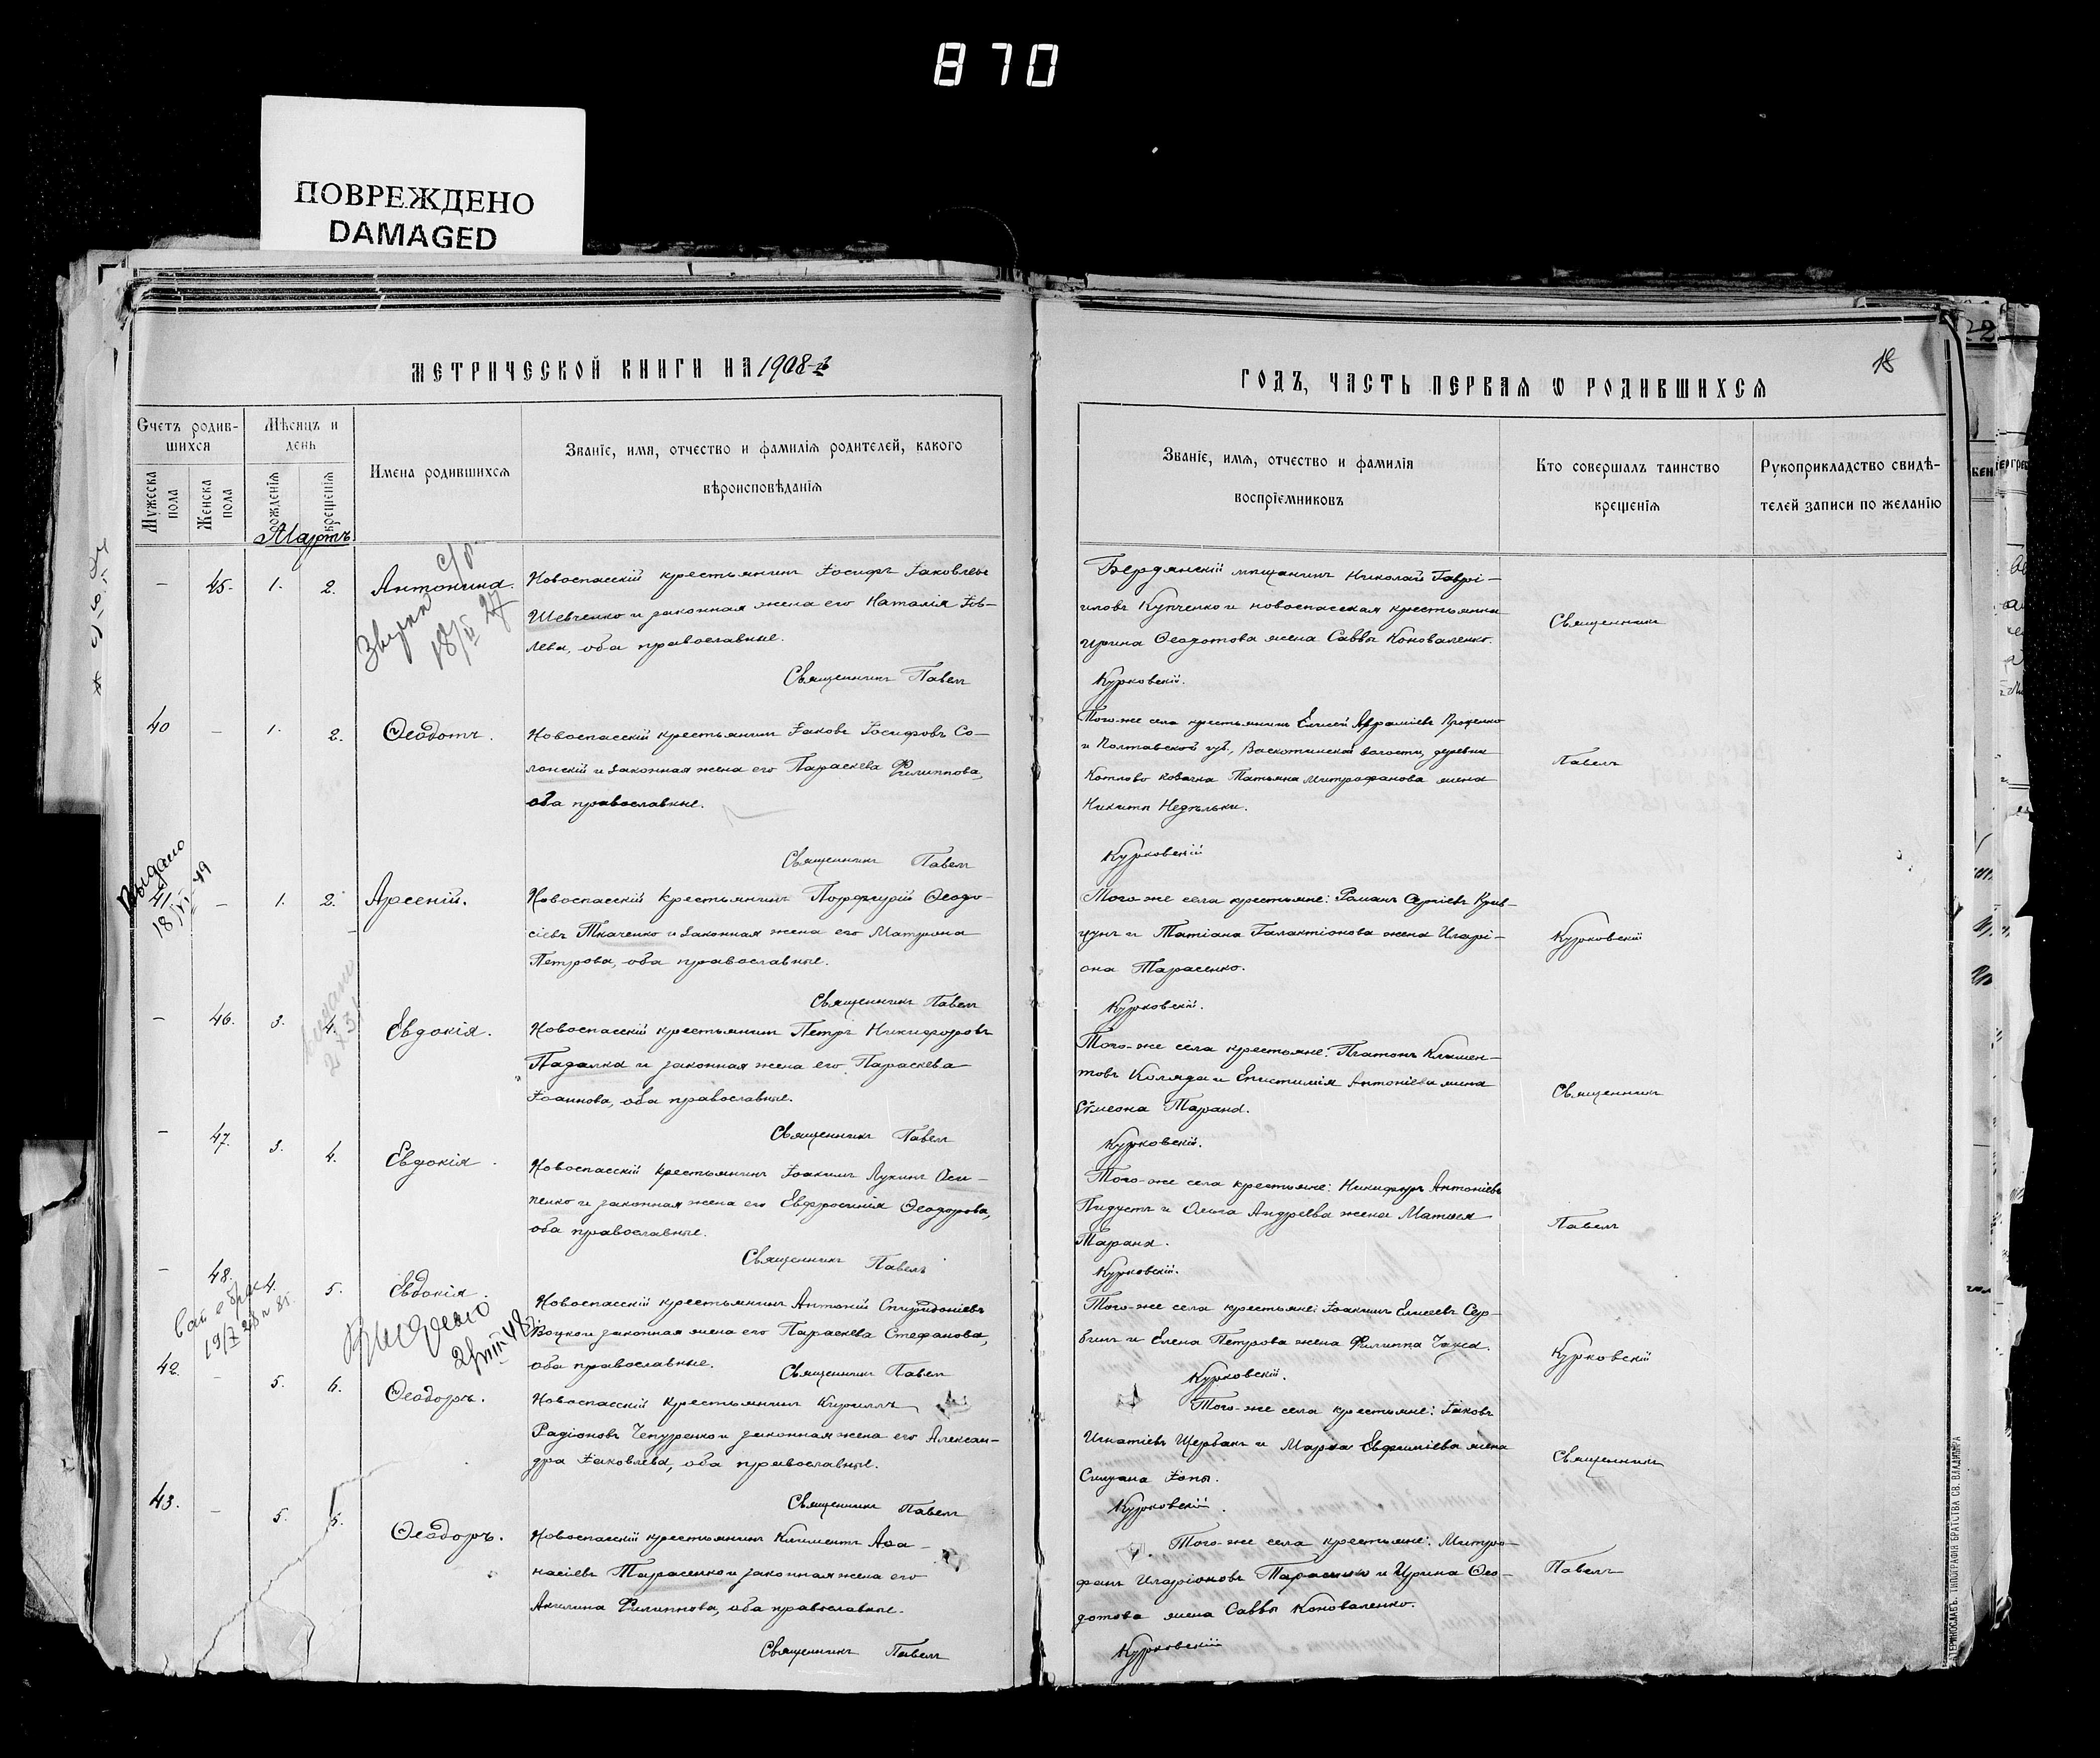 870
ПОВРЕЖДЕНО
DAMAGED
МЕТРИЧЕСКОЙ КНИГИ НА 1908-й
Счетъ родив-
шихся
Мѣсяцъ и
день
Имена родившихся
Званіе, имя, отчество и фамилія родителей, какого
вѣроисповѣданія
Мужеска
пола
Женска
пола
рожденія
крещенія
Мартъ
— 45. 1. 2. Антонина.
18/II 27
Новоспасскій крестьянинъ Іосифъ Іаковлевъ
Шевченко и законная жена его Наталія Іов-
лева, оба православные.
Священникъ Павелъ
40 — 1. 2. Ѳеодотъ.
Новоспасскій крестьянинъ Іаковъ Іосифовъ Со-
лонскій и законная жена его Параскева Филиппова,
оба православные.
Священникъ Павелъ
Выдано
18/VI-49
41 — 1. 2. Арсеній.
Новоспасскій крестьянинъ Порфирій Ѳеодо-
сіевъ Ткаченко и законная жена его Матрона
Петрова, оба православные.
Священникъ Павелъ
— 46. 3. 4. Евдокія.
Новоспасскій крестьянинъ Петръ Никифоровъ
Падалка и законная жена его Параскева
Іоаннова, оба православные.
Священникъ Павелъ
— 47. 3. 4. Евдокія.
Новоспасскій крестьянинъ Іоакимъ Лукинъ Оси-
пенко и законная жена его Евфросинія Ѳеодорова,
оба православные.
Священникъ Павелъ
— 48. 4. 5. Евдокія.
Выдано
Новоспасскій крестьянинъ Антоній Спиридоніевъ
Боцко и законная жена его Параскева Стефанова,
оба православные.
Священникъ Павелъ
42. — 5. 6. Ѳеодоръ.
Новоспасскій крестьянинъ Кириллъ
Радіоновъ Чепуренко и законная жена его Алексан-
дра Іаковлева, оба православные.
Священникъ Павелъ
43. — 5. 5. Ѳеодоръ.
Новоспасскій крестьянинъ Климентъ Аѳа-
насіевъ Тарасенко и законная жена его
Акилина Филиппова, оба православные.
Священникъ Павелъ
18
ГОДЪ, ЧАСТЬ ПЕРВАЯ Ѡ РОДИВШИХСЯ
Званіе, имя, отчество и фамилія
воспріемниковъ
Кто совершалъ таинство
крещенія
Рукоприкладство свидѣ-
телей записи по желанію
Бердянскій мѣщанинъ Николай Гаврі-
иловъ Купченко и новоспасская крестьянка
Ирина Ѳеодотова жена Саввы Коноваленко.
Священникъ
Курковскій.
Того-же села крестьянинъ Елисей Авраміевъ Проценко
и Полтавской губ., волости, деревни
Татьяна Митрофанова жена
Никиты Недѣльки.
Павелъ
Курковскій
Того-же села крестьяне: Романъ Сергіевъ Крив-
цунъ и Татіана Галактіонова жена Иларі-
она Тарасенко.
Курковскій
Курковскій.
Того-же села крестьяне: Платонъ Климен-
товъ Коляда и Епистимія Антоніева жена
Сѵмеона Тарана.
Священникъ
Курковскій.
Того-же села крестьяне: Никифоръ Антоніевъ
Пидустъ и Ольга Андреева жена Матѳея
Тарана.
Павелъ
Курковскій.
Того-же села крестьяне: Іоакимъ Елисеевъ Сер-
бинъ и Елена Петрова жена Филиппа
Курковскій
Курковскій.
Того-же села крестьяне: Іаковъ
Игнатіевъ Щербакъ и Марѳа Евфиміева жена
Священникъ
Курковскій.
Того-же села крестьяне: Митро-
фанъ Иларіоновъ Тарасенко и Ирина Ѳео-
дотова жена Саввы Коноваленко.
Павелъ
Курковскій
22